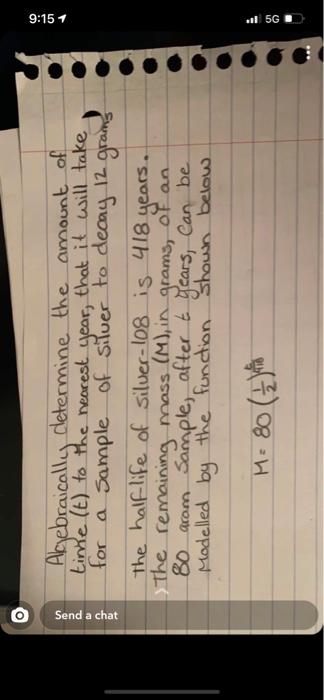 9:15
5G
Algebraically determine the amount of
time (t) to the nearest year, that it will take
for a sample of silver to decay 12 grams
the half-life of silver-108 is 418 years.
The remaining mass (M), in grams, of an
80 gram sample, after t years, can be
Modelled by the function shown below
M = 80 (1/2)^t/418
Send a chat